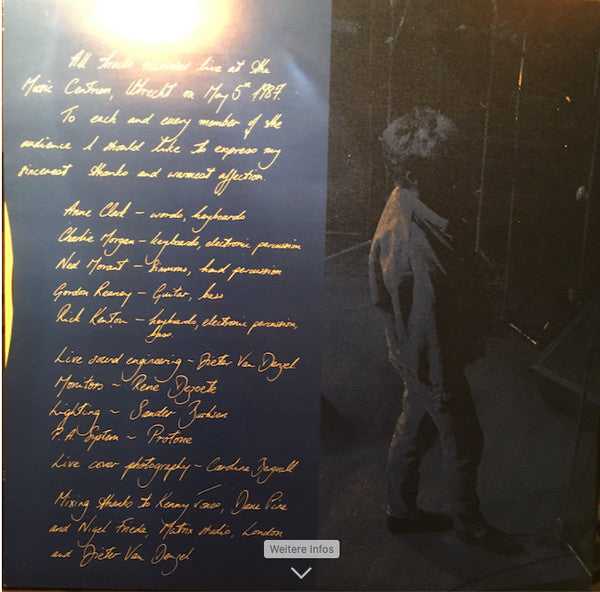 All tracks recorded live at the
Music Centrum, Utrecht on May 5th 1987.
To each and every member of the
audience I should like to express my
sincerest thanks and warmest affection.
Anne Clark – words, keyboards
Charlie Morgan – keyboards, electronic percussion
Ned Morant – Simmons, hand percussion
Gordon Reaney – Guitar, bass
Rick Kenton – keyboards, electronic percussion,
bass.
Live sound engineering – Dieter Van Denzel
Monitors – René Dezoete
Lighting – Sander
P.A. System – Protone
Live cover photography – Caroline Bagnall
Mixing thanks to Kenny Jones, Dave Pine
and Nigel Frieda, Matrix studio, London
and Dieter Van Denzel.
Weitere Infos